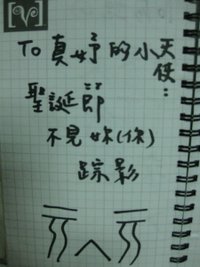 To 真妤的小天使：
聖誕節
不見妳(你)
踪影